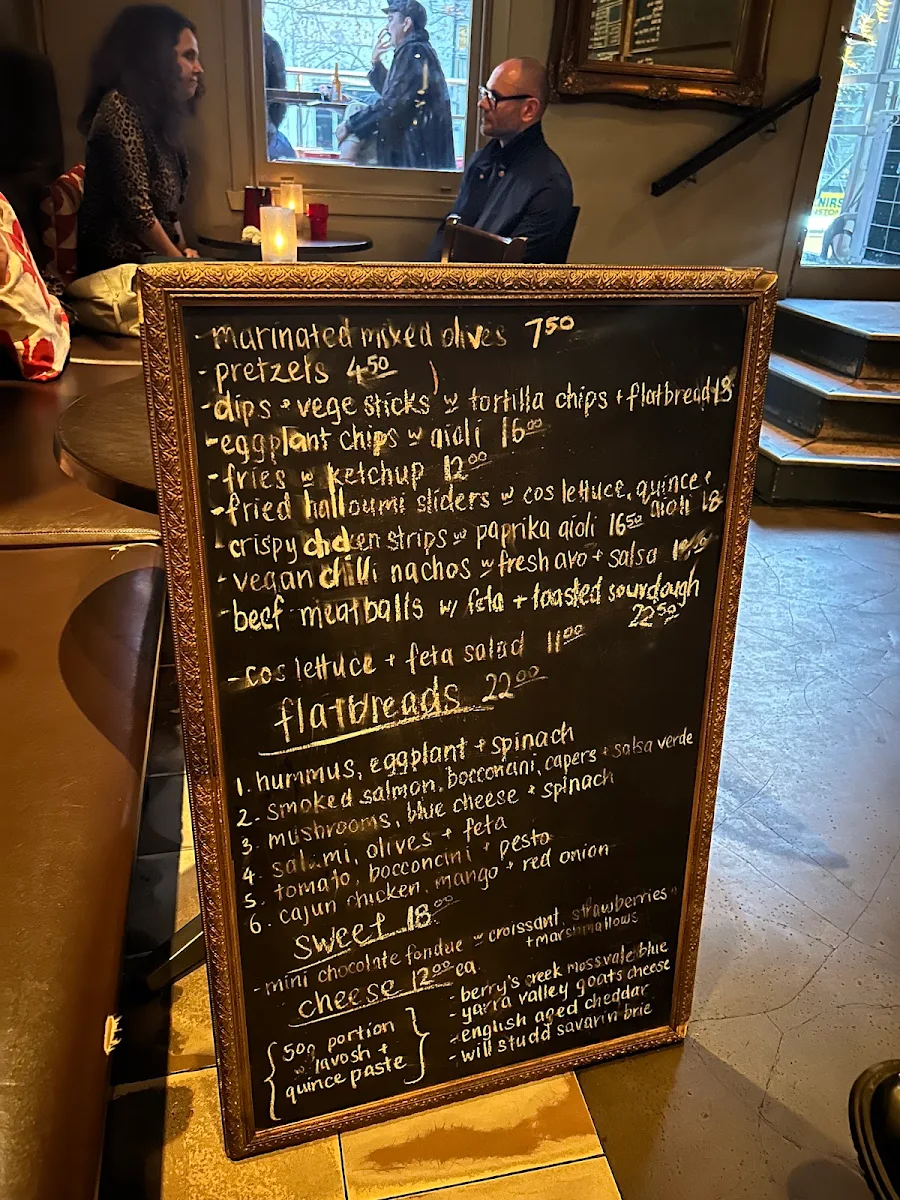 - marinated mixed olives 7 50
- pretzels 4.50
- dips + vege sticks w tortilla chips + flatbread 18
- eggplant chips w aioli 16 00
- fries w ketchup 12 00
- fried halloumi sliders w cos lettuce, quince +
aioli 18
- crispy chicken strips w paprika aioli 16 50
- vegan chilli nachos w fresh avo + salsa
- beef meatballs w/ feta + toasted sourdough
22 50
- cos lettuce + feta salad 11 00
flatbreads 22 00
1. hummus, eggplant + spinach
2. smoked salmon, bocconcini, capers + salsa verde
3. mushrooms, blue cheese + spinach
4. salami, olives + feta
5. tomato, bocconcini + pesto
6. cajun chicken, mango + red onion
sweet 18 00
- mini chocolate fondue w croissant, strawberries
+ marshmallows
cheese 12 00 ea
{ 50g portion
w lavosh +
quince paste }
- berry's creek mossvale blue
- yarra valley goats cheese
- english aged cheddar
- will studd savarin brie